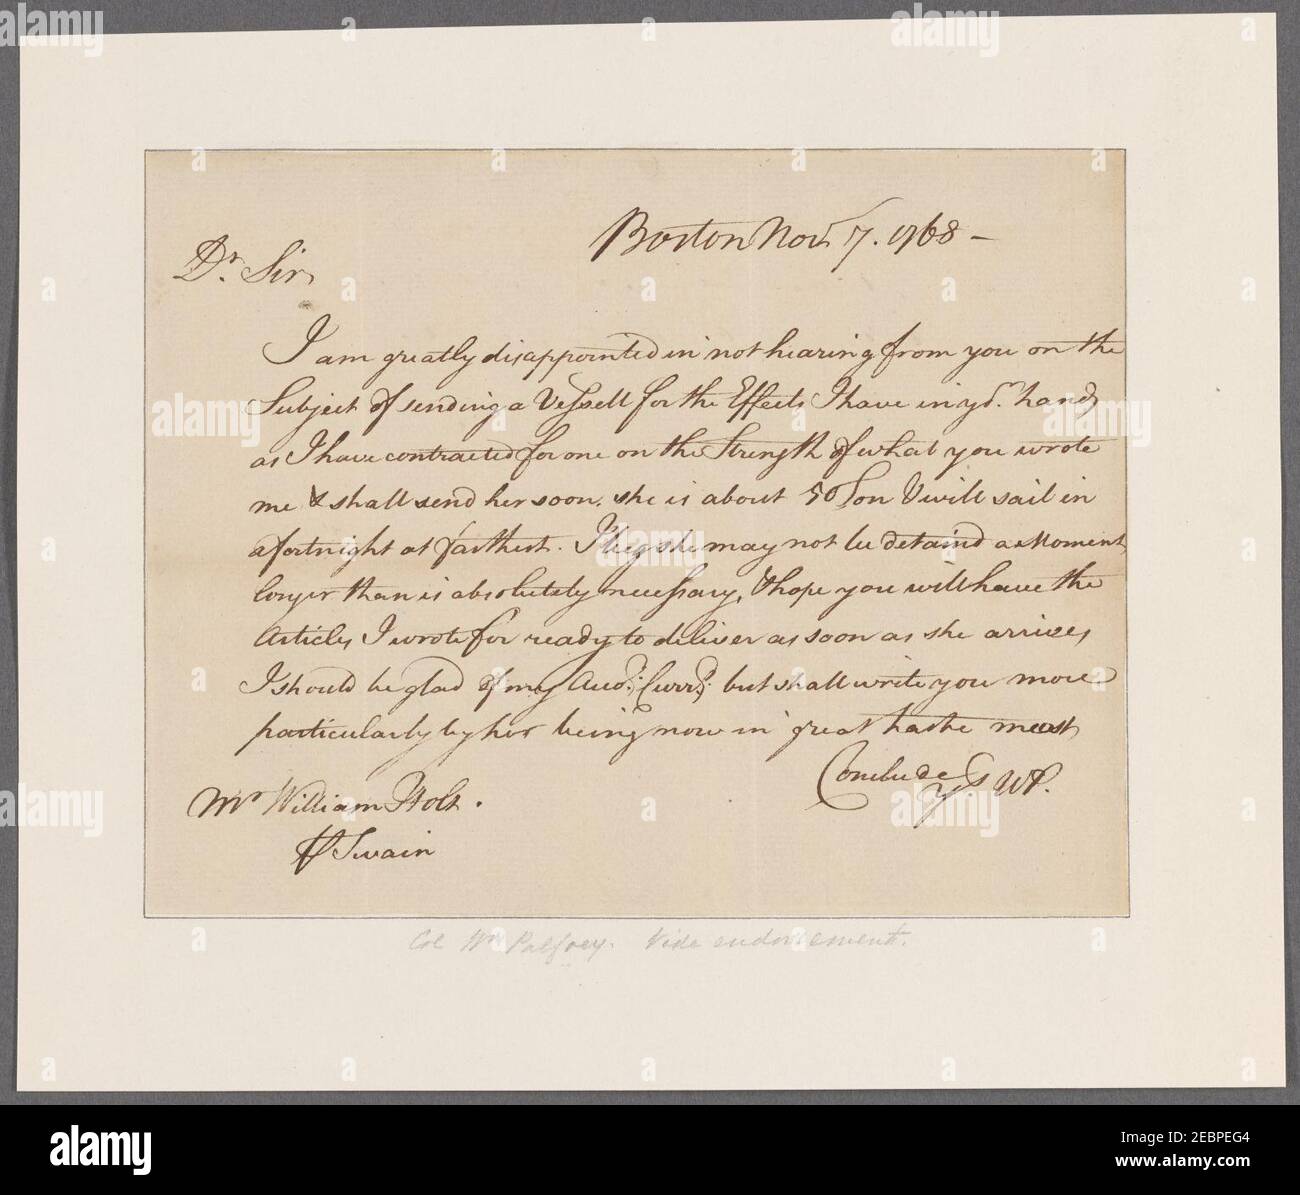 Boston Novr 7. 1768 –
Dr. Sir,
I am greatly disappointed in not hearing from you on the
Subject of sending a Vessell for the Effects I have in yr. hand,
as I have contracted for one on the Strength of what you wrote
me & shall send her soon. she is about 50 Ton & will sail in
a fortnight at farthest. I beg she may not be detain'd a Moment
longer than is absolutely necessary, & hope you will have the
Articles I wrote for ready to deliver as soon as she arrives,
I should be glad of my Curr.t but shall write you more
particularly by her being now in great haste must
Conclude Ys WP.
Mr William Holt.
Swain
Col Wm Palfrey. Vide endorsement.
alamy
Image ID: 2EBPEG4
www.alamy.com